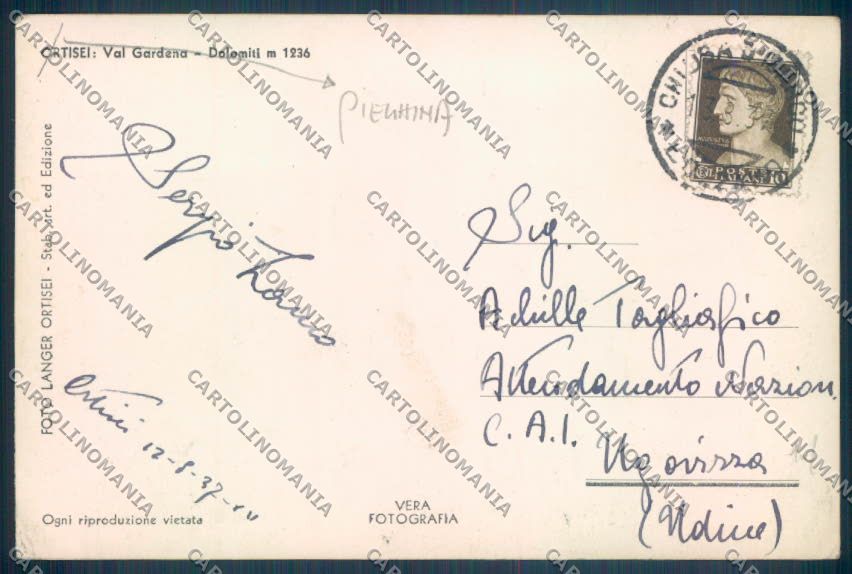 ORTISEI: Val Gardena - Dolomiti m 1236
PIEGHINA
FOTO LANGER ORTISEI - Stab. art. ed Edizione
Sergio
Ortisei 12-8-37-XV
Ogni riproduzione vietata
VERA
FOTOGRAFIA
CHIUSA
POSTE
ITALIANE
10
Sig.
Achille Tagliafico
Attendamento Nazion.
C. A. I.
Ugovizza
(Udine)
CARTOLINOMANIA